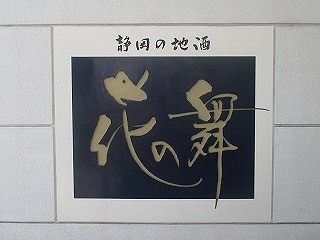 静岡の地酒
花の舞